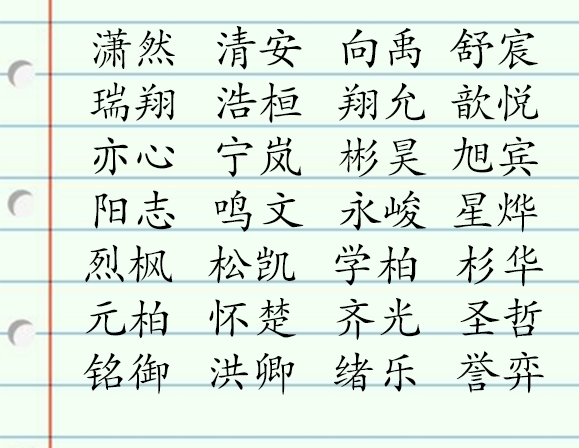 潇然 清安 向禹 舒宸
瑞翔 浩桓 翔允 歆悦
亦心 宁岚 彬昊 旭宾
阳志 鸣文 永峻 星烨
烈枫 松凯 学柏 杉华
元柏 怀楚 齐光 圣哲
铭御 洪卿 绪乐 誉弈